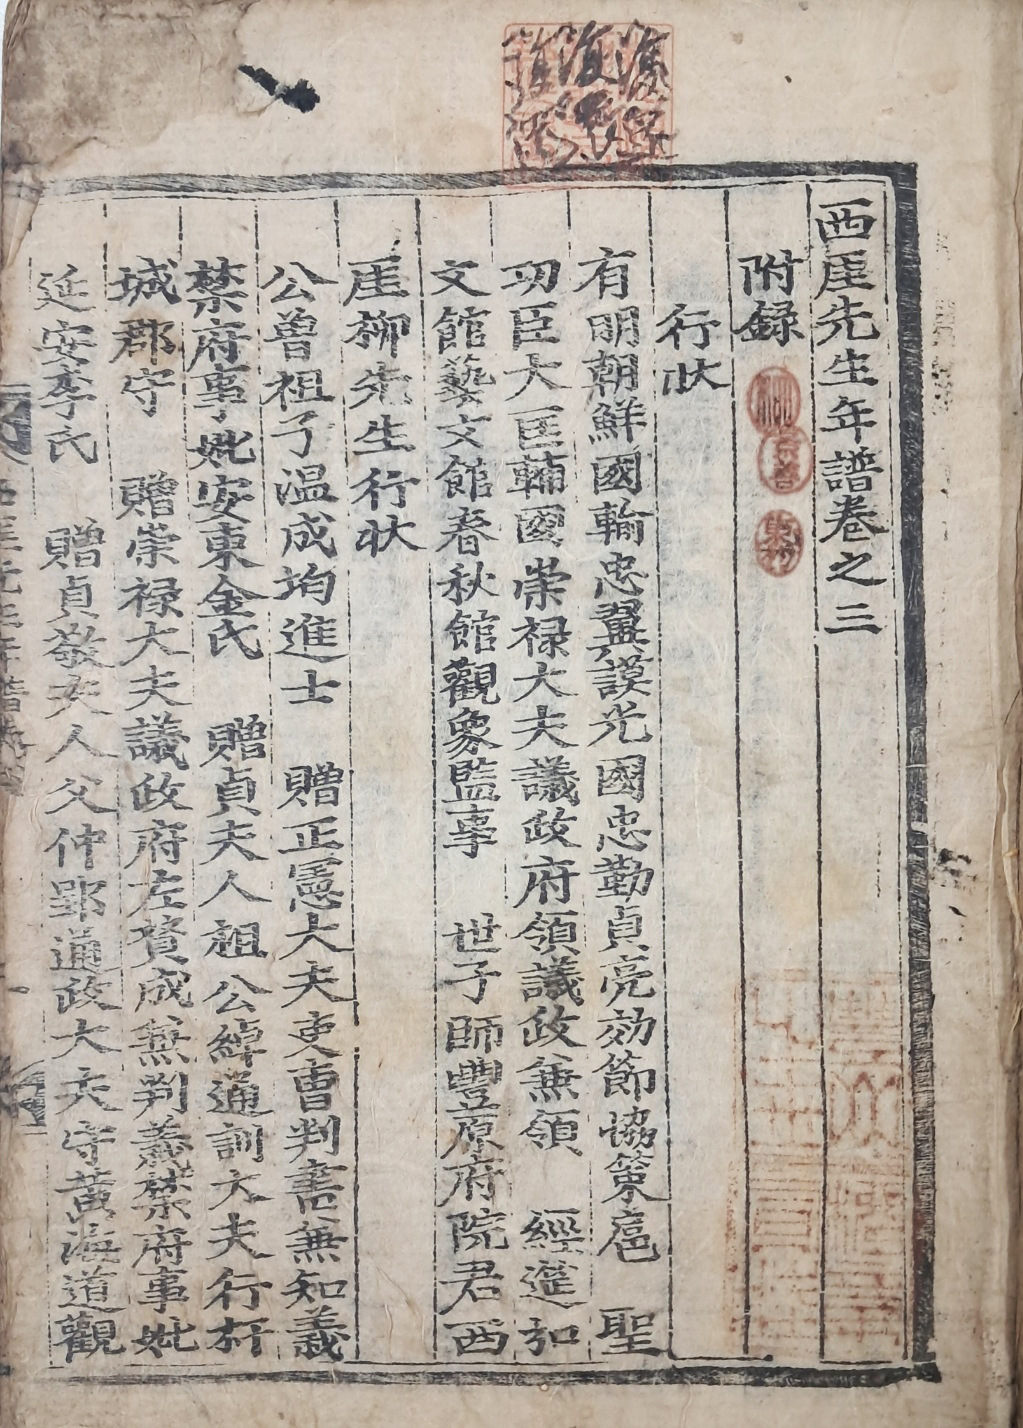 西厓先生年譜卷之三
附録
行狀
有明朝鮮國輸忠翼謨光國忠勤貞亮効節協策扈 聖
功臣大匡輔國崇禄大夫議政府領議政兼領 經筵弘
文館藝文館春秋館觀象監事 世子師豐原府院君西
厓柳先生行狀
公曽祖子温成均進士 贈正憲大夫吏曹判書兼知義
禁府事妣安東金氏 贈貞夫人祖公綽通訓大夫行杆
城郡守 贈崇禄大夫議政府左賛成兼判義禁府事妣
延安李氏 贈貞敬夫人父仲郢通政大夫守黄海道觀